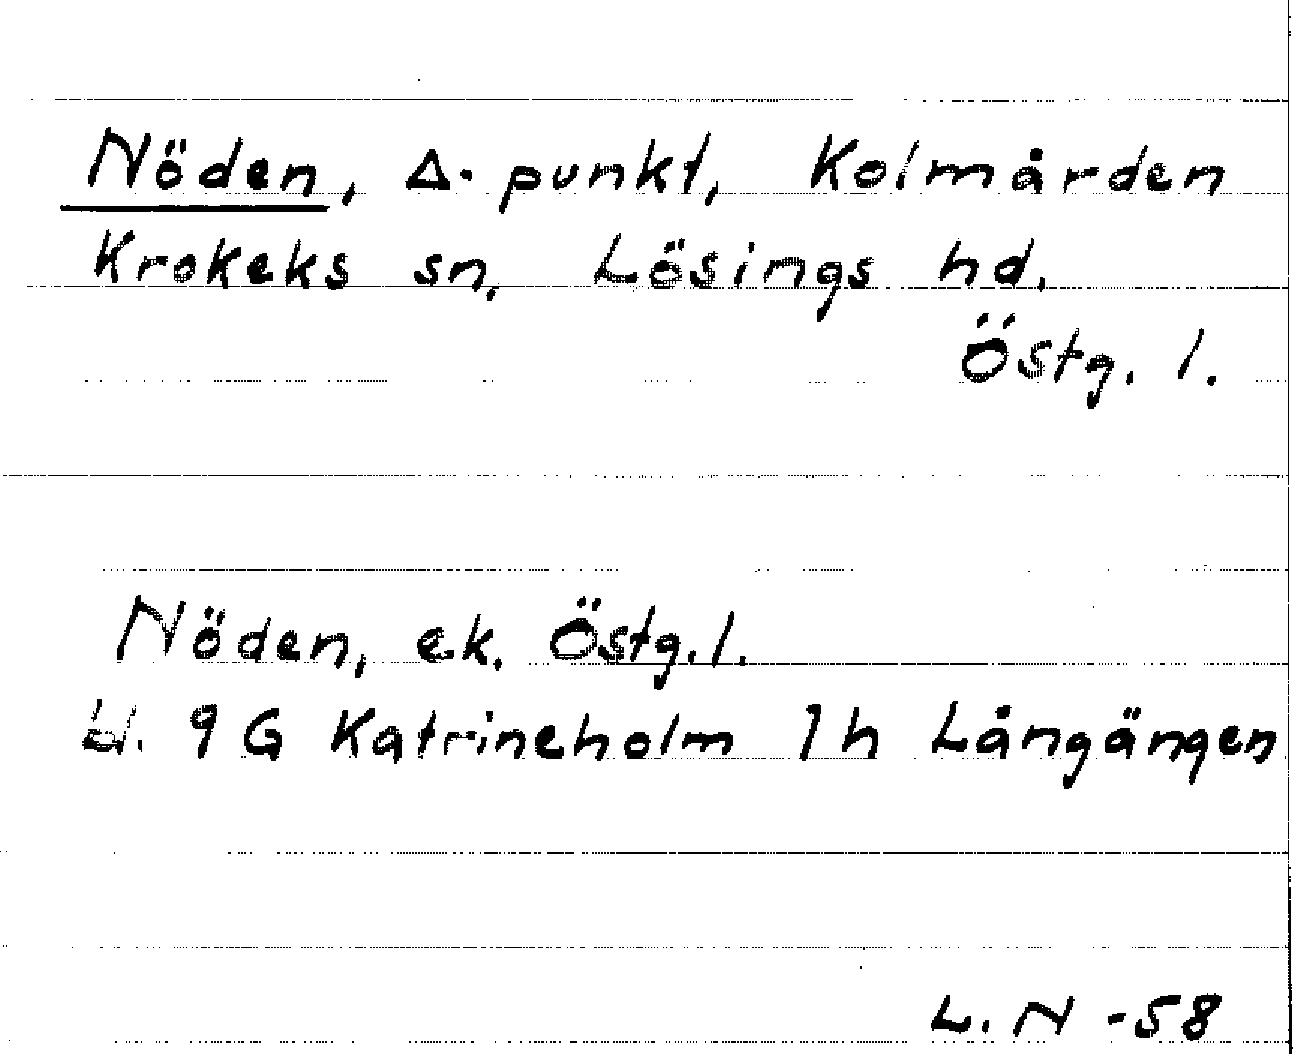 Nöden, Δ. punkt, Kolmården
Krokeks sn, Lösings hd.
Östg. l.
Nöden, ek. Östg. l.
bl. 9 G Katrineholm 1h Långängen
L. N -58